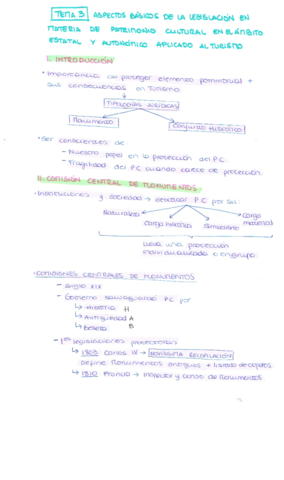 TEMA 3 ASPECTOS BÁSICOS DE LA LEGISLACIÓN EN
MATERIA DE PATRIMONIO CULTURAL EN EL ÁMBITO
ESTATAL Y AUTONÓMICO APLICADO AL TURISMO
I. INTRODUCCIÓN
• Importancia de proteger elemento patrimonial +
sus consecuencias en Turismo.
TIPOLOGÍAS JURÍDICAS
Monumento
Conjunto Histórico
• Ser conscientes de
- Nuestro papel en la protección del P.C.
- Fragilidad del P.C cuando carece de protección.
II. COMISIÓN CENTRAL DE MONUMENTOS
• Instituciones y sociedad → P.C por su:
Naturaleza
Carga histórica
Simbolismo
Carga material
Lleva una protección
individualizada o en grupo.
• COMISIONES CENTRALES DE MONUMENTOS
- Siglo XIX
- Gobierno salvaguarda P.C por
↳ Historia H
↳ Antigüedad A
↳ Belleza B
- 1ªs legislaciones protectoras
↳ 1803: Carlos IV → NOVÍSIMA RECOPILACIÓN
define Monumentos antiguos + listado de objetos.
↳ 1810: Francia → Inspector y censo de Monumentos.